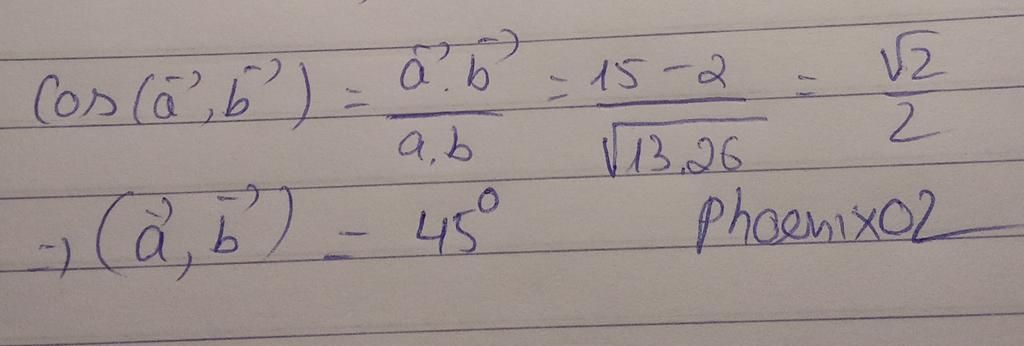 Cos(a⃗, b⃗) = a⃗.b⃗ / a.b = 15-2 / √13.26 = √2 / 2
→ (a⃗, b⃗) = 45° Phoenix02